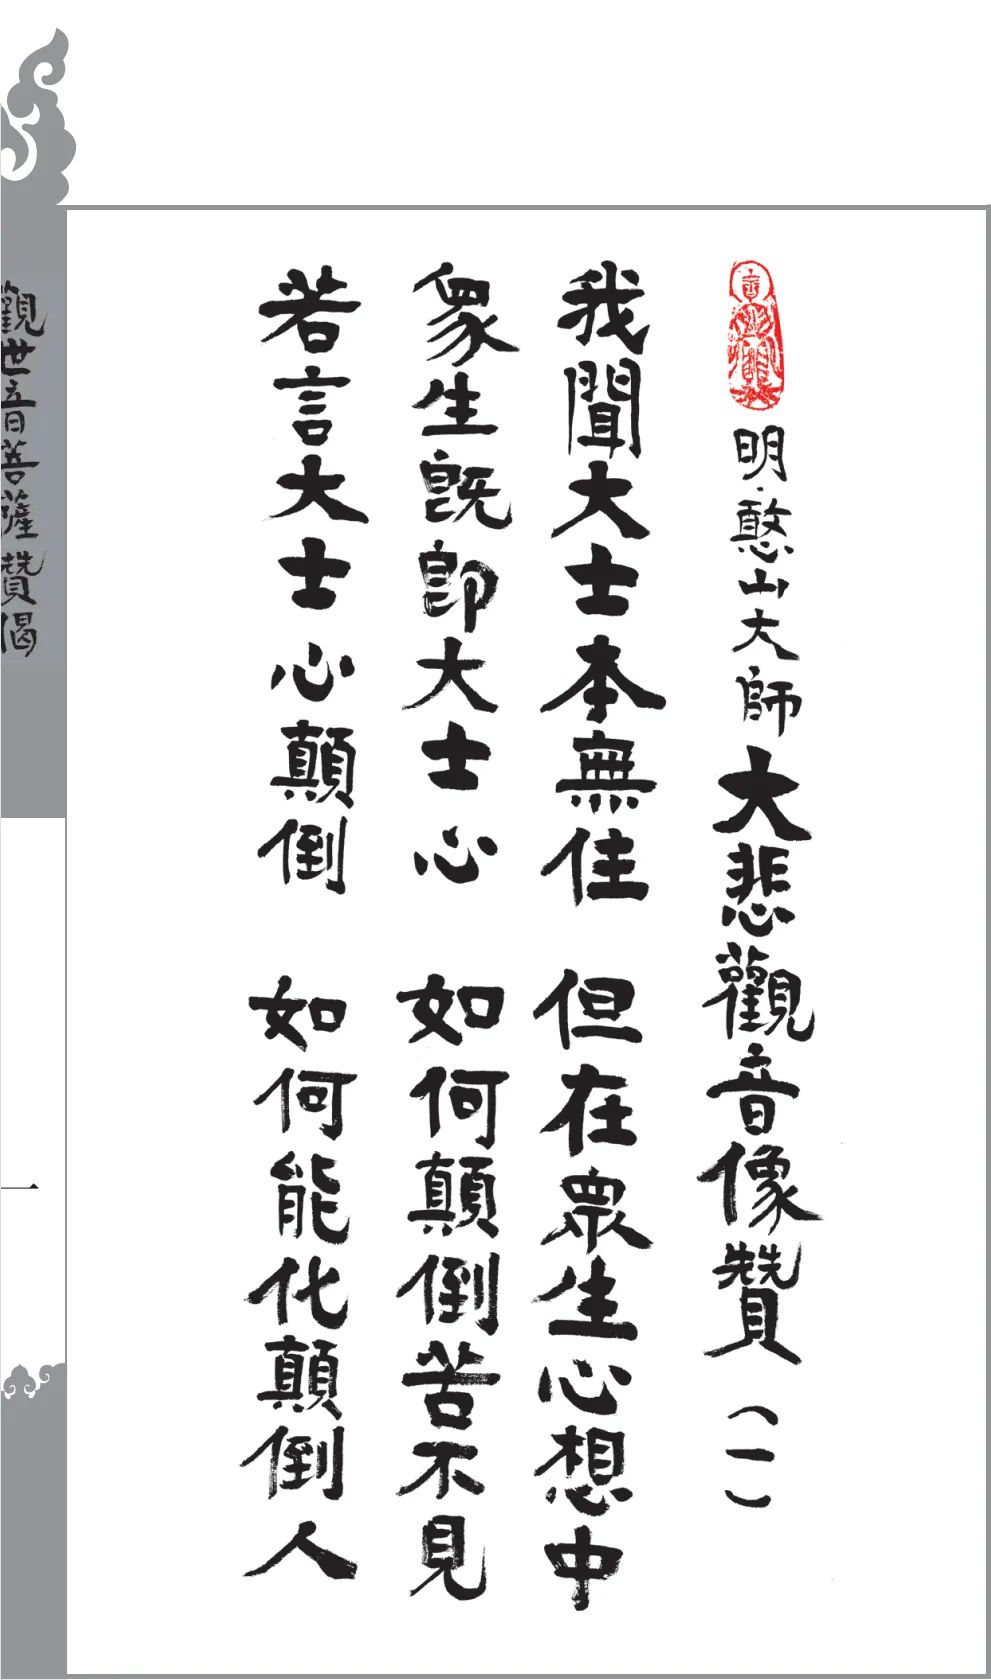 明·憨山大師 大悲觀音像贊(一)
我聞大士本無住 但在眾生心想中
眾生既即大士心 如何顛倒苦不見
若言大士心顛倒 如何能化顛倒人
觀世音菩薩贊偈
一